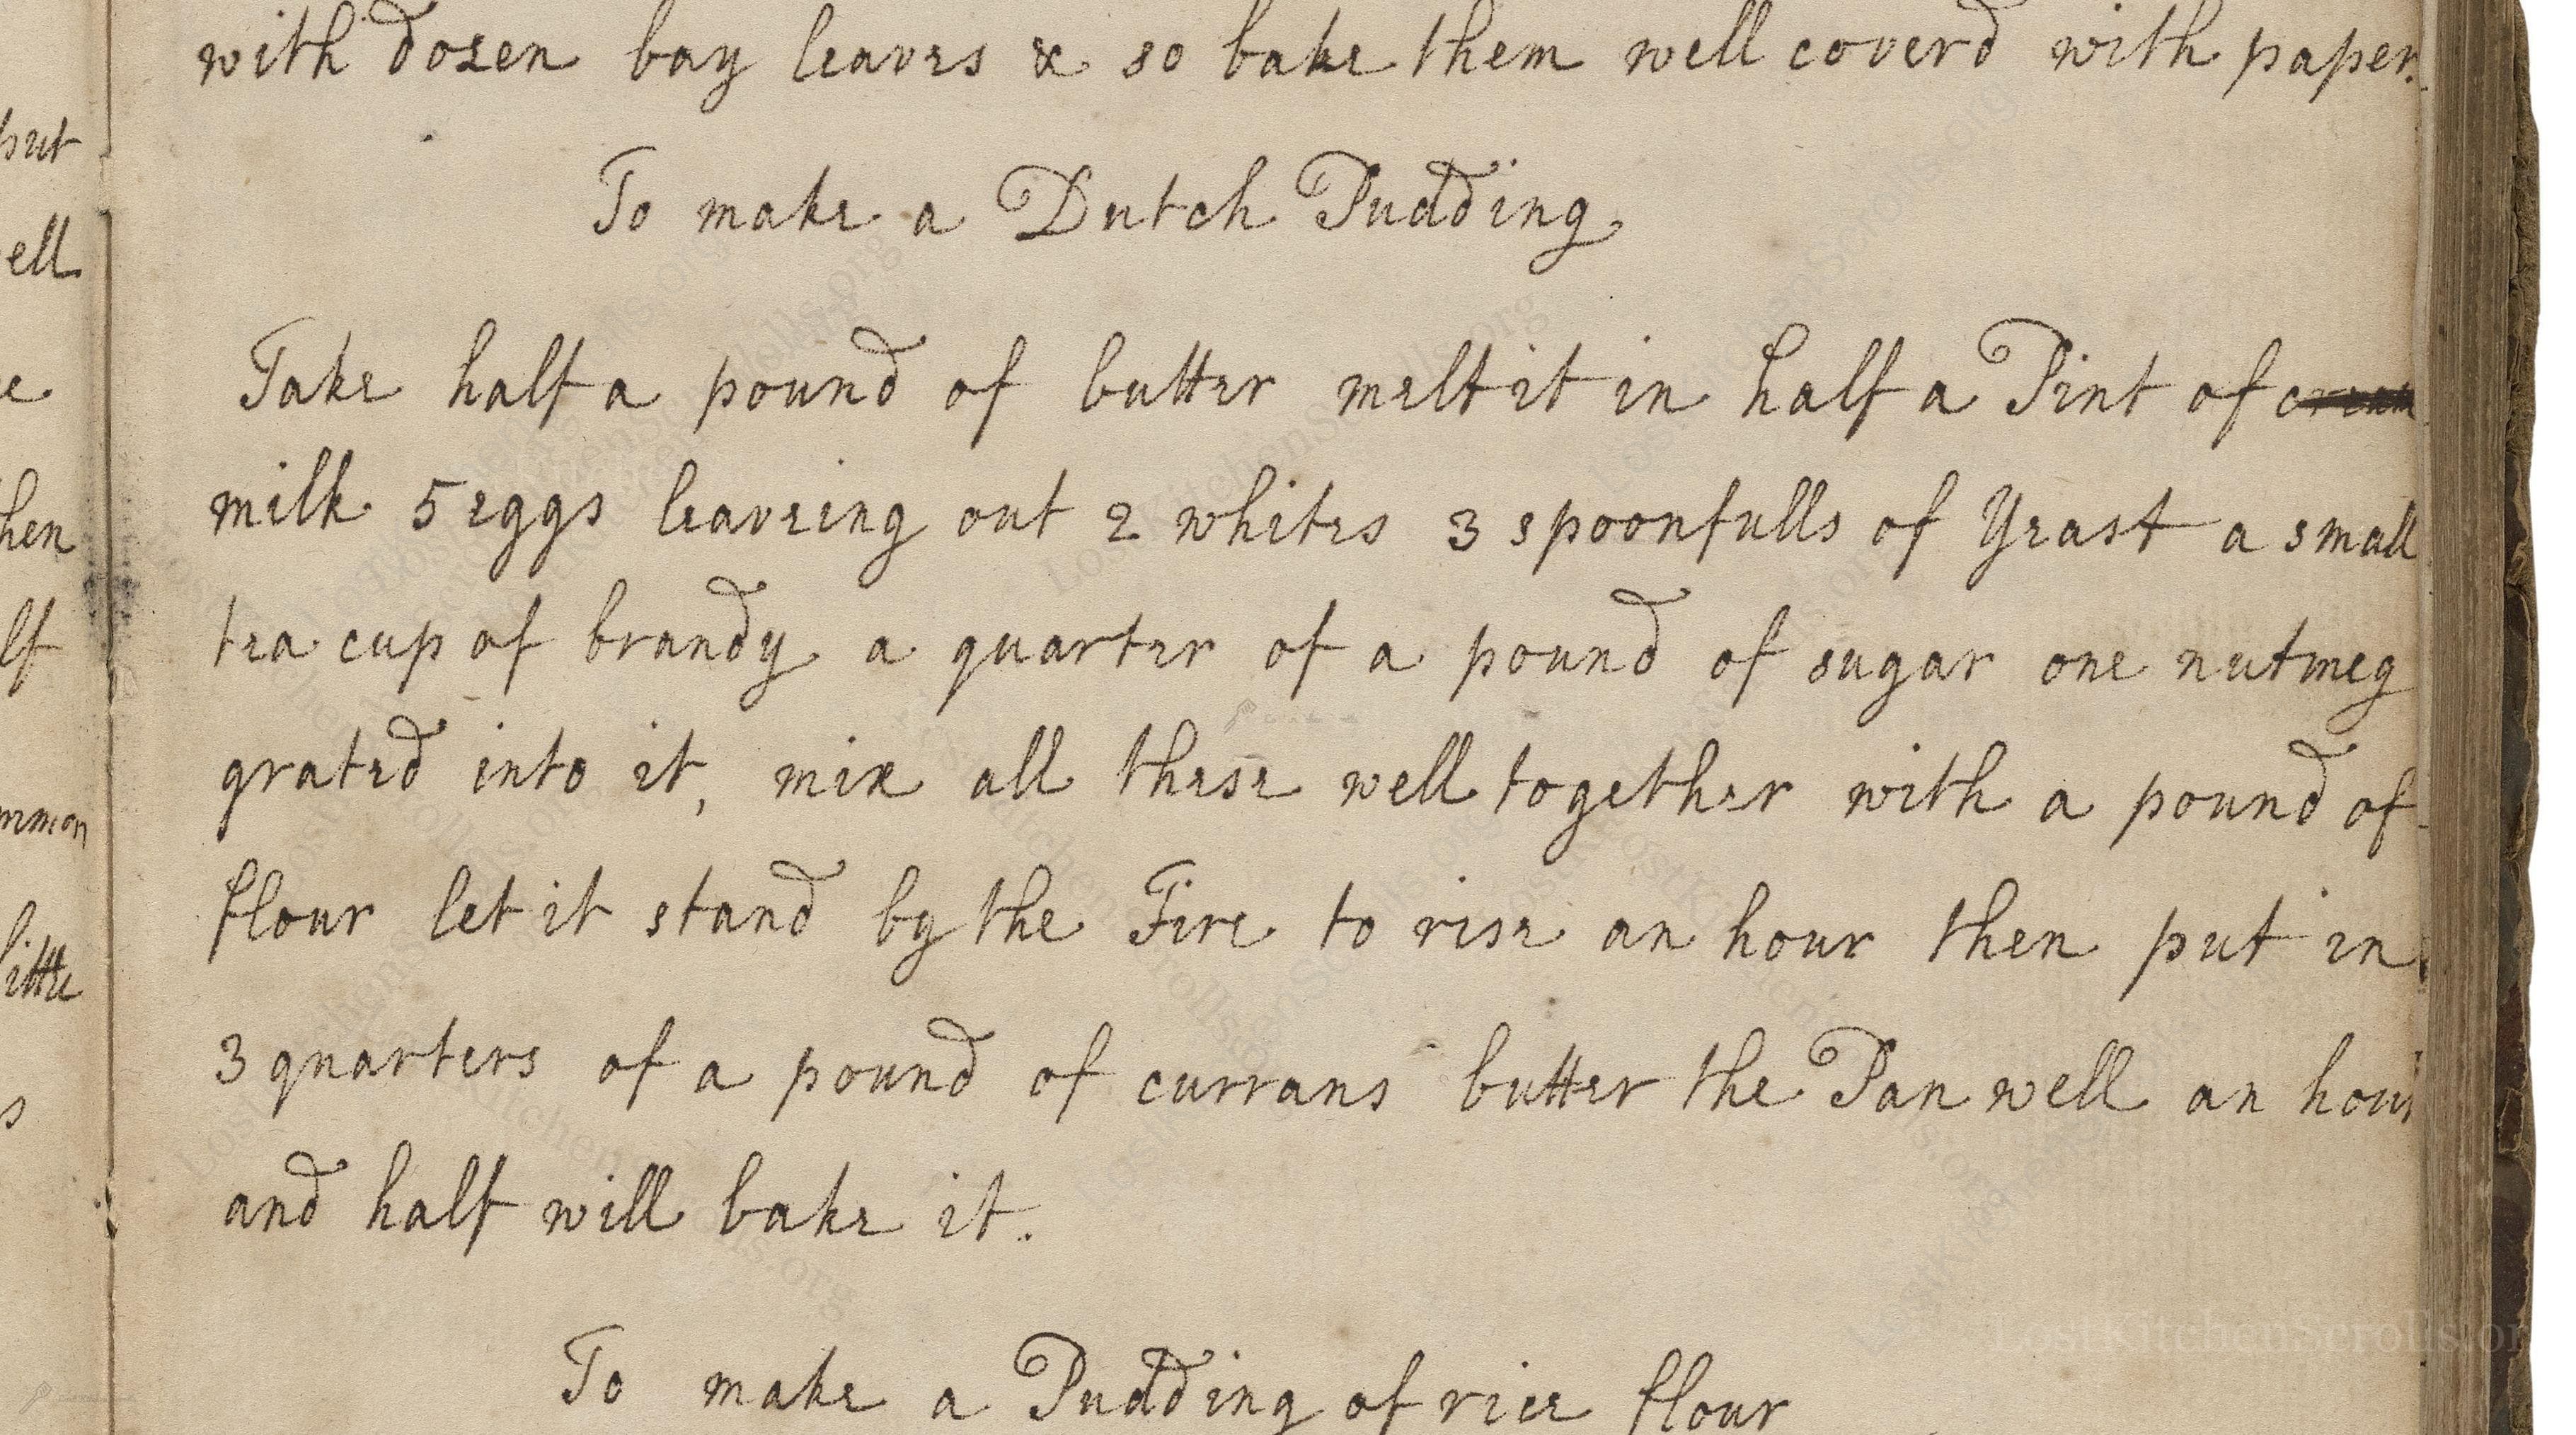 with dozen bay leaves & so bake them well coverd with paper.
To make a Dutch Pudding
Take half a pound of butter melt it in half a Pint of cream
milk 5 eggs leaveing out 2 whites 3 spoonfulls of Yeast a small
tea cup of brandy a quarter of a pound of sugar one nutmeg
grated into it, mix all these well together with a pound of
flour let it stand by the Fire to rise an hour then put in
3 quarters of a pound of currans butter the Pan well an hour
and half will bake it.
To make a Pudding of rice flour
put
ell
hen
lf
mmon
little
s
LostKitchenScrolls.or